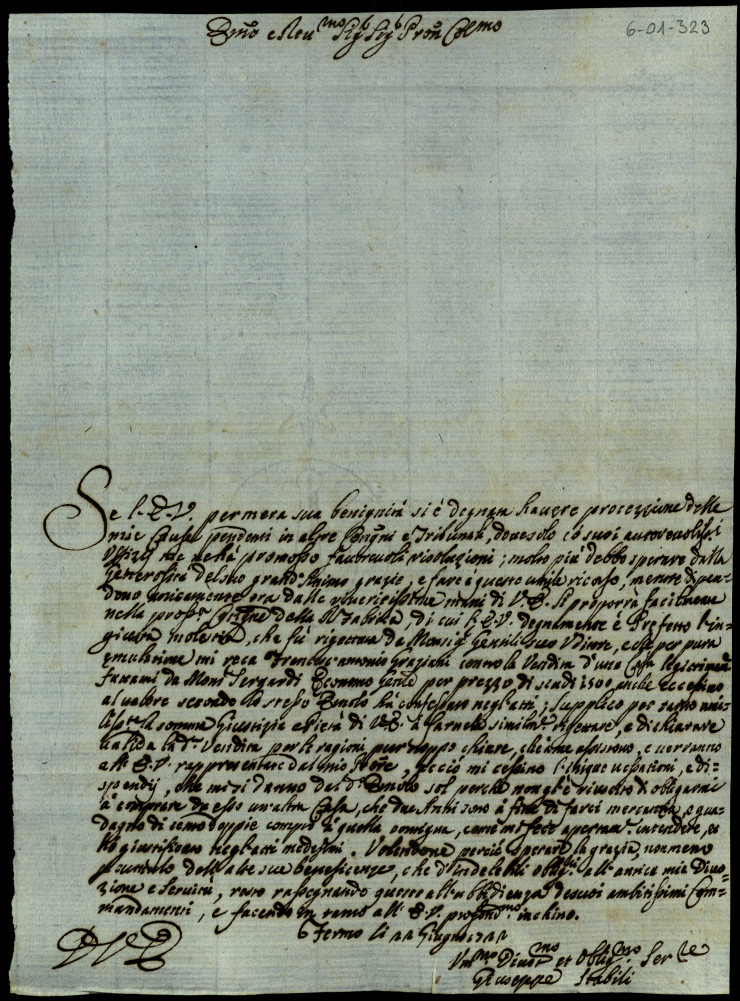 6-01-323
Emo e Reu mo Sig Sig Pron Colmo
Se l'E.V. per mera sua benignità si è degnata hauere protezzione delle
mie Cause pendenti in altre e Tribunali, doue solo i suoi autoreuolissi
Vffizii me ne hà promosso fauoreuoli risoluzioni; molto più debbo sperare dalla
Generosità del suo grand'Animo grazie, e fare à queste umile ricorso, mentre dipen-
dono unicamente ora dalle mani di V.E. Si proporrà facilmente
nella pross.a Congne della R. Fabrica, di cui l'E.V. degnamente è Prefetto l'in-
giusta molestia, che fù rigettata da Monsig. Gentili suo Vditore, e che per pura
emulazione mi reca Francescantonio Graziani contro la Vendita d'una Casa
fattami da Mons. Sergardi Economo per prezzo di scudi 1500 anche eccessiuo
al valore secondo lo stesso hà confessato negl'atti; supplico per tanto umi-
liss.te la somma Giustizia e Pietà di V.E. à farnela similm.te rigettare, e dichiarare
valida la d.a Vendita per le ragioni pur troppo chiare, che mi assistono, e verranno
all'E.V. rappresentate dal mio, acciò mi cessino l'inique uessazioni, e di-
spendij, che mi si danno dal d.o sol perche non gl'è riuscito di obligarmi
à comprare da esso un'altra Casa, che due Anni sono à fine di farci mercanzia, e gua-
dagno di cento doppie comprò à quella contigua, come mi fece apertam.te intendere, et
hò giustificato negl'atti medesimi. Volendone perciò sperare la grazia, non meno
dell'altre sue beneficenze, che d'indelebili oblig.ni all'antica mia Diuo-
zione e Seruitù, resto rassegnando questa all'ubbidienza de suoi ambitissimi Com-
mandamenti, e facendo in tanto all'E.V. profond.mo inchino.
Fermo li 11 Giugno 1711
D V E
Vm.mo Diuot.mo et Oblig.mo Ser.re
Giuseppe Stabili